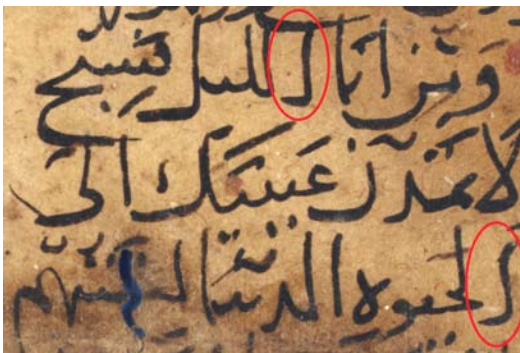 ومن انا الليل فسبح
لا تمدن عينيك الى
الحيوه الدنيا لنفتنهم